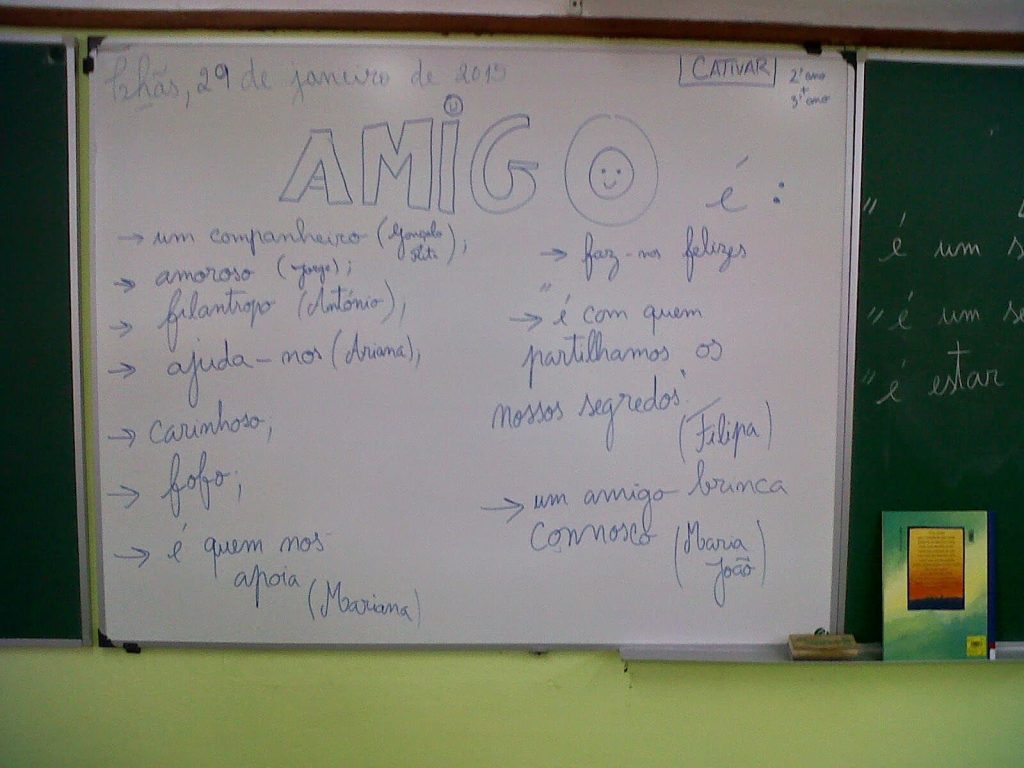 Ilhãs, 29 de janeiro de 2015
CATIVAR
2º ano
+
3º ano
AMIGO é :
→ um companheiro (Gonçalo
);
→ amoroso (Jorge);
→ filantropo (António);
→ ajuda-nos (Ariana);
→ carinhoso;
→ fofo;
→ é quem nos
apoia
(Mariana)
→ faz-nos felizes
→ "é com quem
partilhamos os
nossos segredos"
(Filipa)
→ um amigo brinca
connosco (Maria
João)
" é um s
" é um se
" é estar